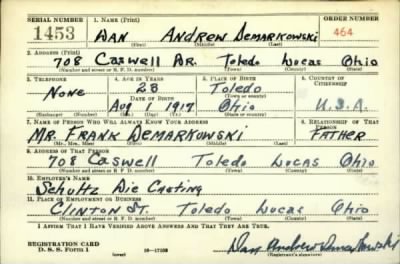 SERIAL NUMBER 1. NAME (Print) ORDER NUMBER
1453 DAN ANDREW DEMARKOWSKI 464
(First) (Middle) (Last)
2. ADDRESS (Print)
708 CASWELL DR. TOLEDO LUCAS OHIO
(Number and street or R. F. D. number) (Town) (County) (State)
3. TELEPHONE 4. AGE IN YEARS 5. PLACE OF BIRTH 6. COUNTRY OF CITIZENSHIP
NONE 23 TOLEDO
DATE OF BIRTH (Town or county)
AUG 1 1917 OHIO U.S.A.
(Mo.) (Day) (Yr.) (State or country)
7. NAME OF PERSON WHO WILL ALWAYS KNOW YOUR ADDRESS 8. RELATIONSHIP OF THAT PERSON
MR. FRANK DEMARKOWSKI FATHER
(Mr., Mrs., Miss) (First) (Middle) (Last)
9. ADDRESS OF THAT PERSON
708 CASWELL TOLEDO LUCAS OHIO
(Number and street or R. F. D. number) (Town) (County) (State)
10. EMPLOYER'S NAME
SCHULTZ DIE CASTING
11. PLACE OF EMPLOYMENT OR BUSINESS
CLINTON ST. TOLEDO LUCAS OHIO
(Number and street or R. F. D. number) (Town) (County) (State)
I AFFIRM THAT I HAVE VERIFIED ABOVE ANSWERS AND THAT THEY ARE TRUE.
REGISTRATION CARD
D. S. S. Form 1 (over) Dan Andrew Demarkowski
(Registrant's signature)